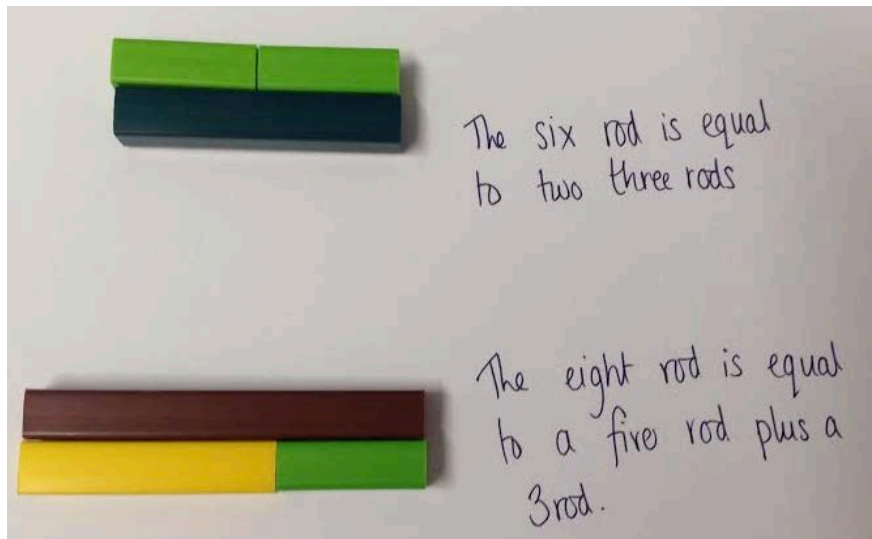 The six rod is equal
to two three rods
The eight rod is equal
to a five rod plus a
3rod.